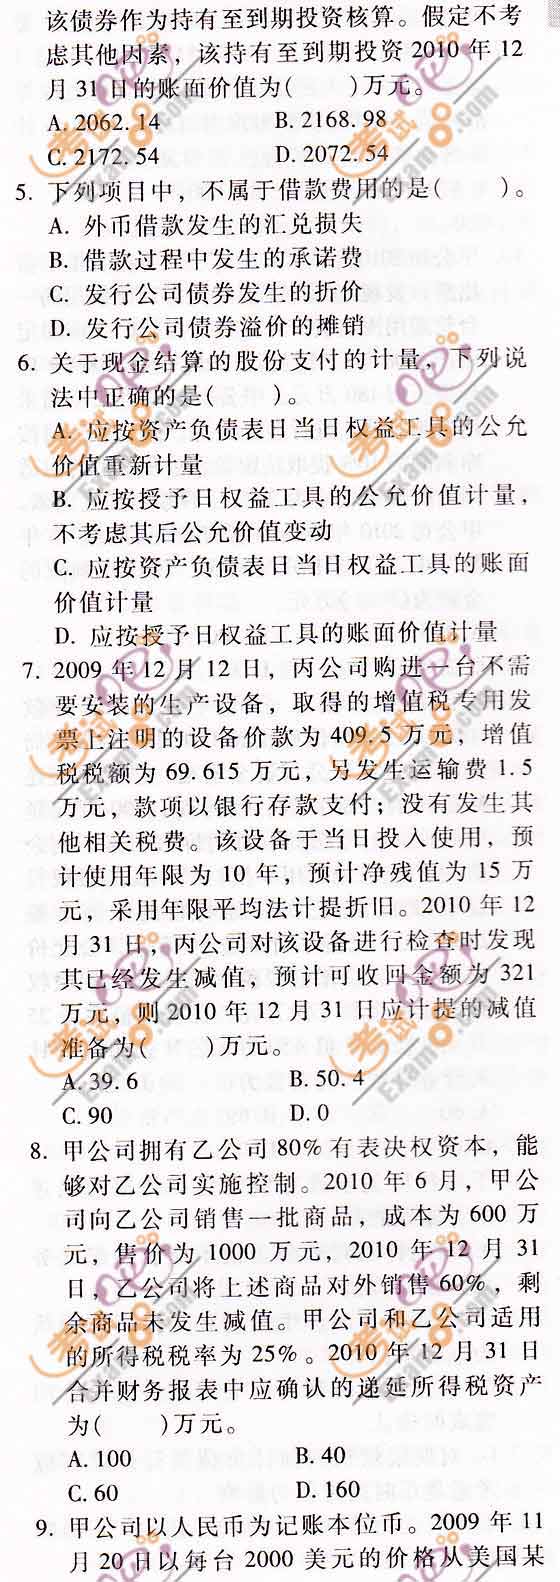 该债券作为持有至到期投资核算。假定不考
虑其他因素，该持有至到期投资 2010 年 12
月 31 日的账面价值为(　　)万元。
A. 2062.14　　B. 2168.98
C. 2172.54　　D. 2072.54
5. 下列项目中，不属于借款费用的是(　　)。
A. 外币借款发生的汇兑损失
B. 借款过程中发生的承诺费
C. 发行公司债券发生的折价
D. 发行公司债券溢价的摊销
6. 关于现金结算的股份支付的计量，下列说
法中正确的是(　　)。
A. 应按资产负债表日当日权益工具的公允
价值重新计量
B. 应按授予日权益工具的公允价值计量，
不考虑其后公允价值变动
C. 应按资产负债表日当日权益工具的账面
价值计量
D. 应按授予日权益工具的账面价值计量
7. 2009 年 12 月 12 日，丙公司购进一台不需
要安装的生产设备，取得的增值税专用发
票上注明的设备价款为 409.5 万元，增值
税税额为 69.615 万元，另发生运输费 1.5
万元，款项以银行存款支付；没有发生其
他相关税费。该设备于当日投入使用，预
计使用年限为 10 年，预计净残值为 15 万
元，采用年限平均法计提折旧。2010 年 12
月 31 日，丙公司对该设备进行检查时发现
其已经发生减值，预计可收回金额为 321
万元，则 2010 年 12 月 31 日应计提的减值
准备为(　　)万元。
A. 39.6　　B. 50.4
C. 90　　D. 0
8. 甲公司拥有乙公司 80% 有表决权资本，能
够对乙公司实施控制。2010 年 6 月，甲公
司向乙公司销售一批商品，成本为 600 万
元，售价为 1000 万元，2010 年 12 月 31
日，乙公司将上述商品对外销售 60%，剩
余商品未发生减值。甲公司和乙公司适用
的所得税税率为 25%。2010 年 12 月 31 日
合并财务报表中应确认的递延所得税资产
为(　　)万元。
A. 100　　B. 40
C. 60　　D. 160
9. 甲公司以人民币为记账本位币。2009 年 11
月 20 日以每台 2000 美元的价格从美国某